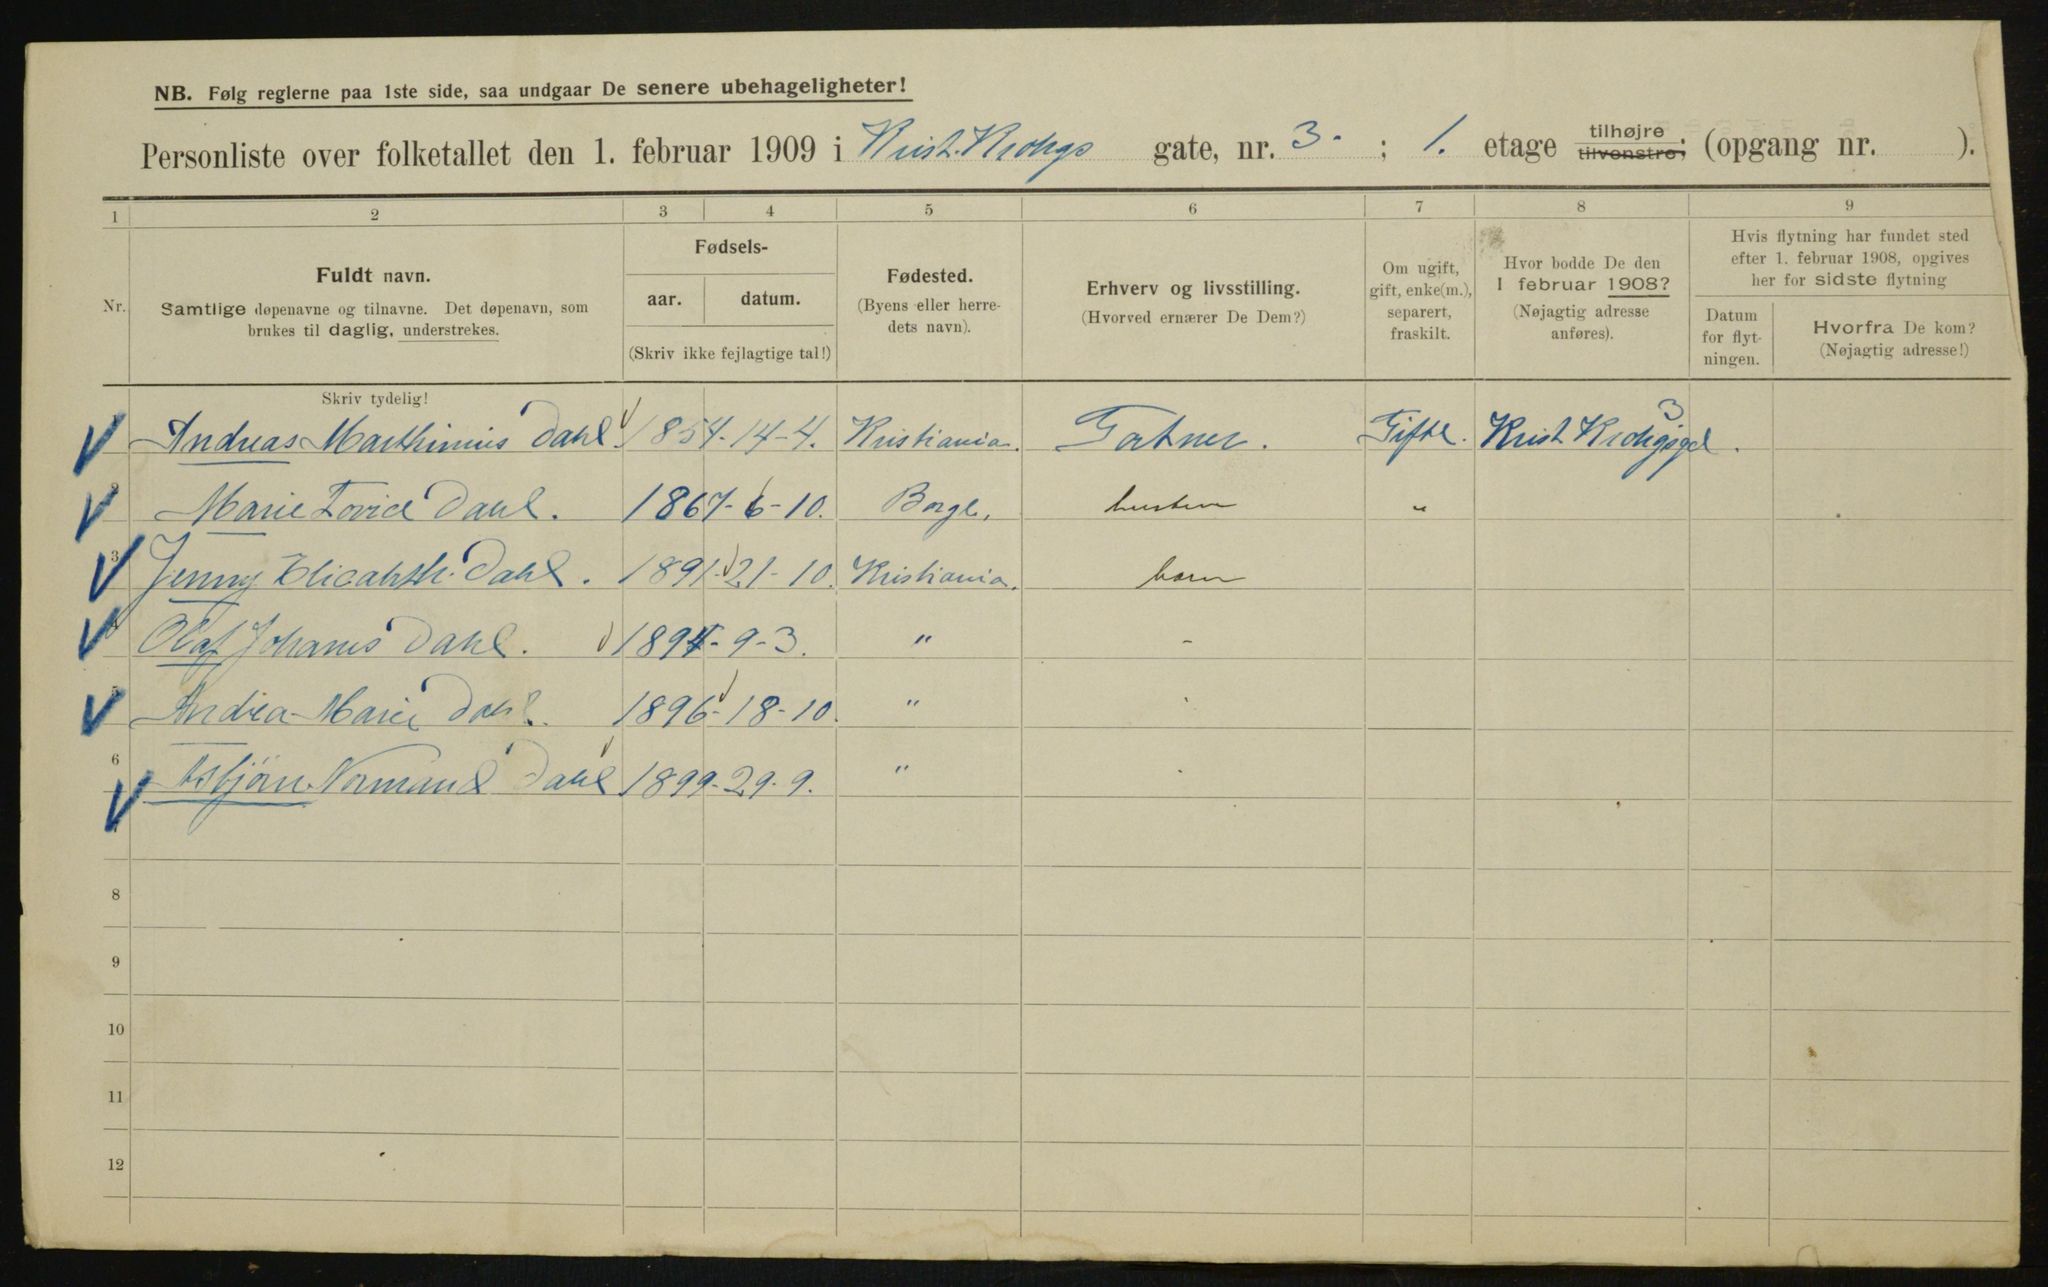 NB. Følg reglerne paa 1ste side, saa undgaar De senere ubehageligheter!
Personliste over folketallet den 1. februar 1909 i Krist. Krohgs gate, nr. 3. ; 1. etage tilhøjre tilvenstre; (opgang nr. ).
1 2 3 4 5 6 7 8 9
Nr.
Fuldt navn.
Samtlige døpenavne og tilnavne. Det døpenavn, som
brukes til daglig, understrekes.
Fødsels-
aar. datum.
(Skriv ikke fejlagtige tal!)
Fødested.
(Byens eller herre-
dets navn).
Erhverv og livsstilling.
(Hvorved ernærer De Dem?)
Om ugift,
gift, enke(m.),
separert,
fraskilt.
Hvor bodde De den
1 februar 1908?
(Nøjagtig adresse
anføres).
Hvis flytning har fundet sted
efter 1. februar 1908, opgives
her for sidste flytning
Datum
for flyt-
ningen.
Hvorfra De kom?
(Nøjagtig adresse!)
Skriv tydelig!
Andreas Marthinius Dahl. 1854-14-4. Kristiania. Gartner. Gift. Krist Krohgsgd 3.
2 Marie Dahl. 1867-6-10. Borge. hustru "
3 Jenny Elisabeth Dahl. 1891-21-10. Kristiania. barn
4 Olaf Johanes Dahl. 189-9-3. " -
5 Andrea Marie Dahl. 1896-18-10. " -
6 Asbjørn Normand Dahl 1899-29-9. " -
7
8
9
10
11
12